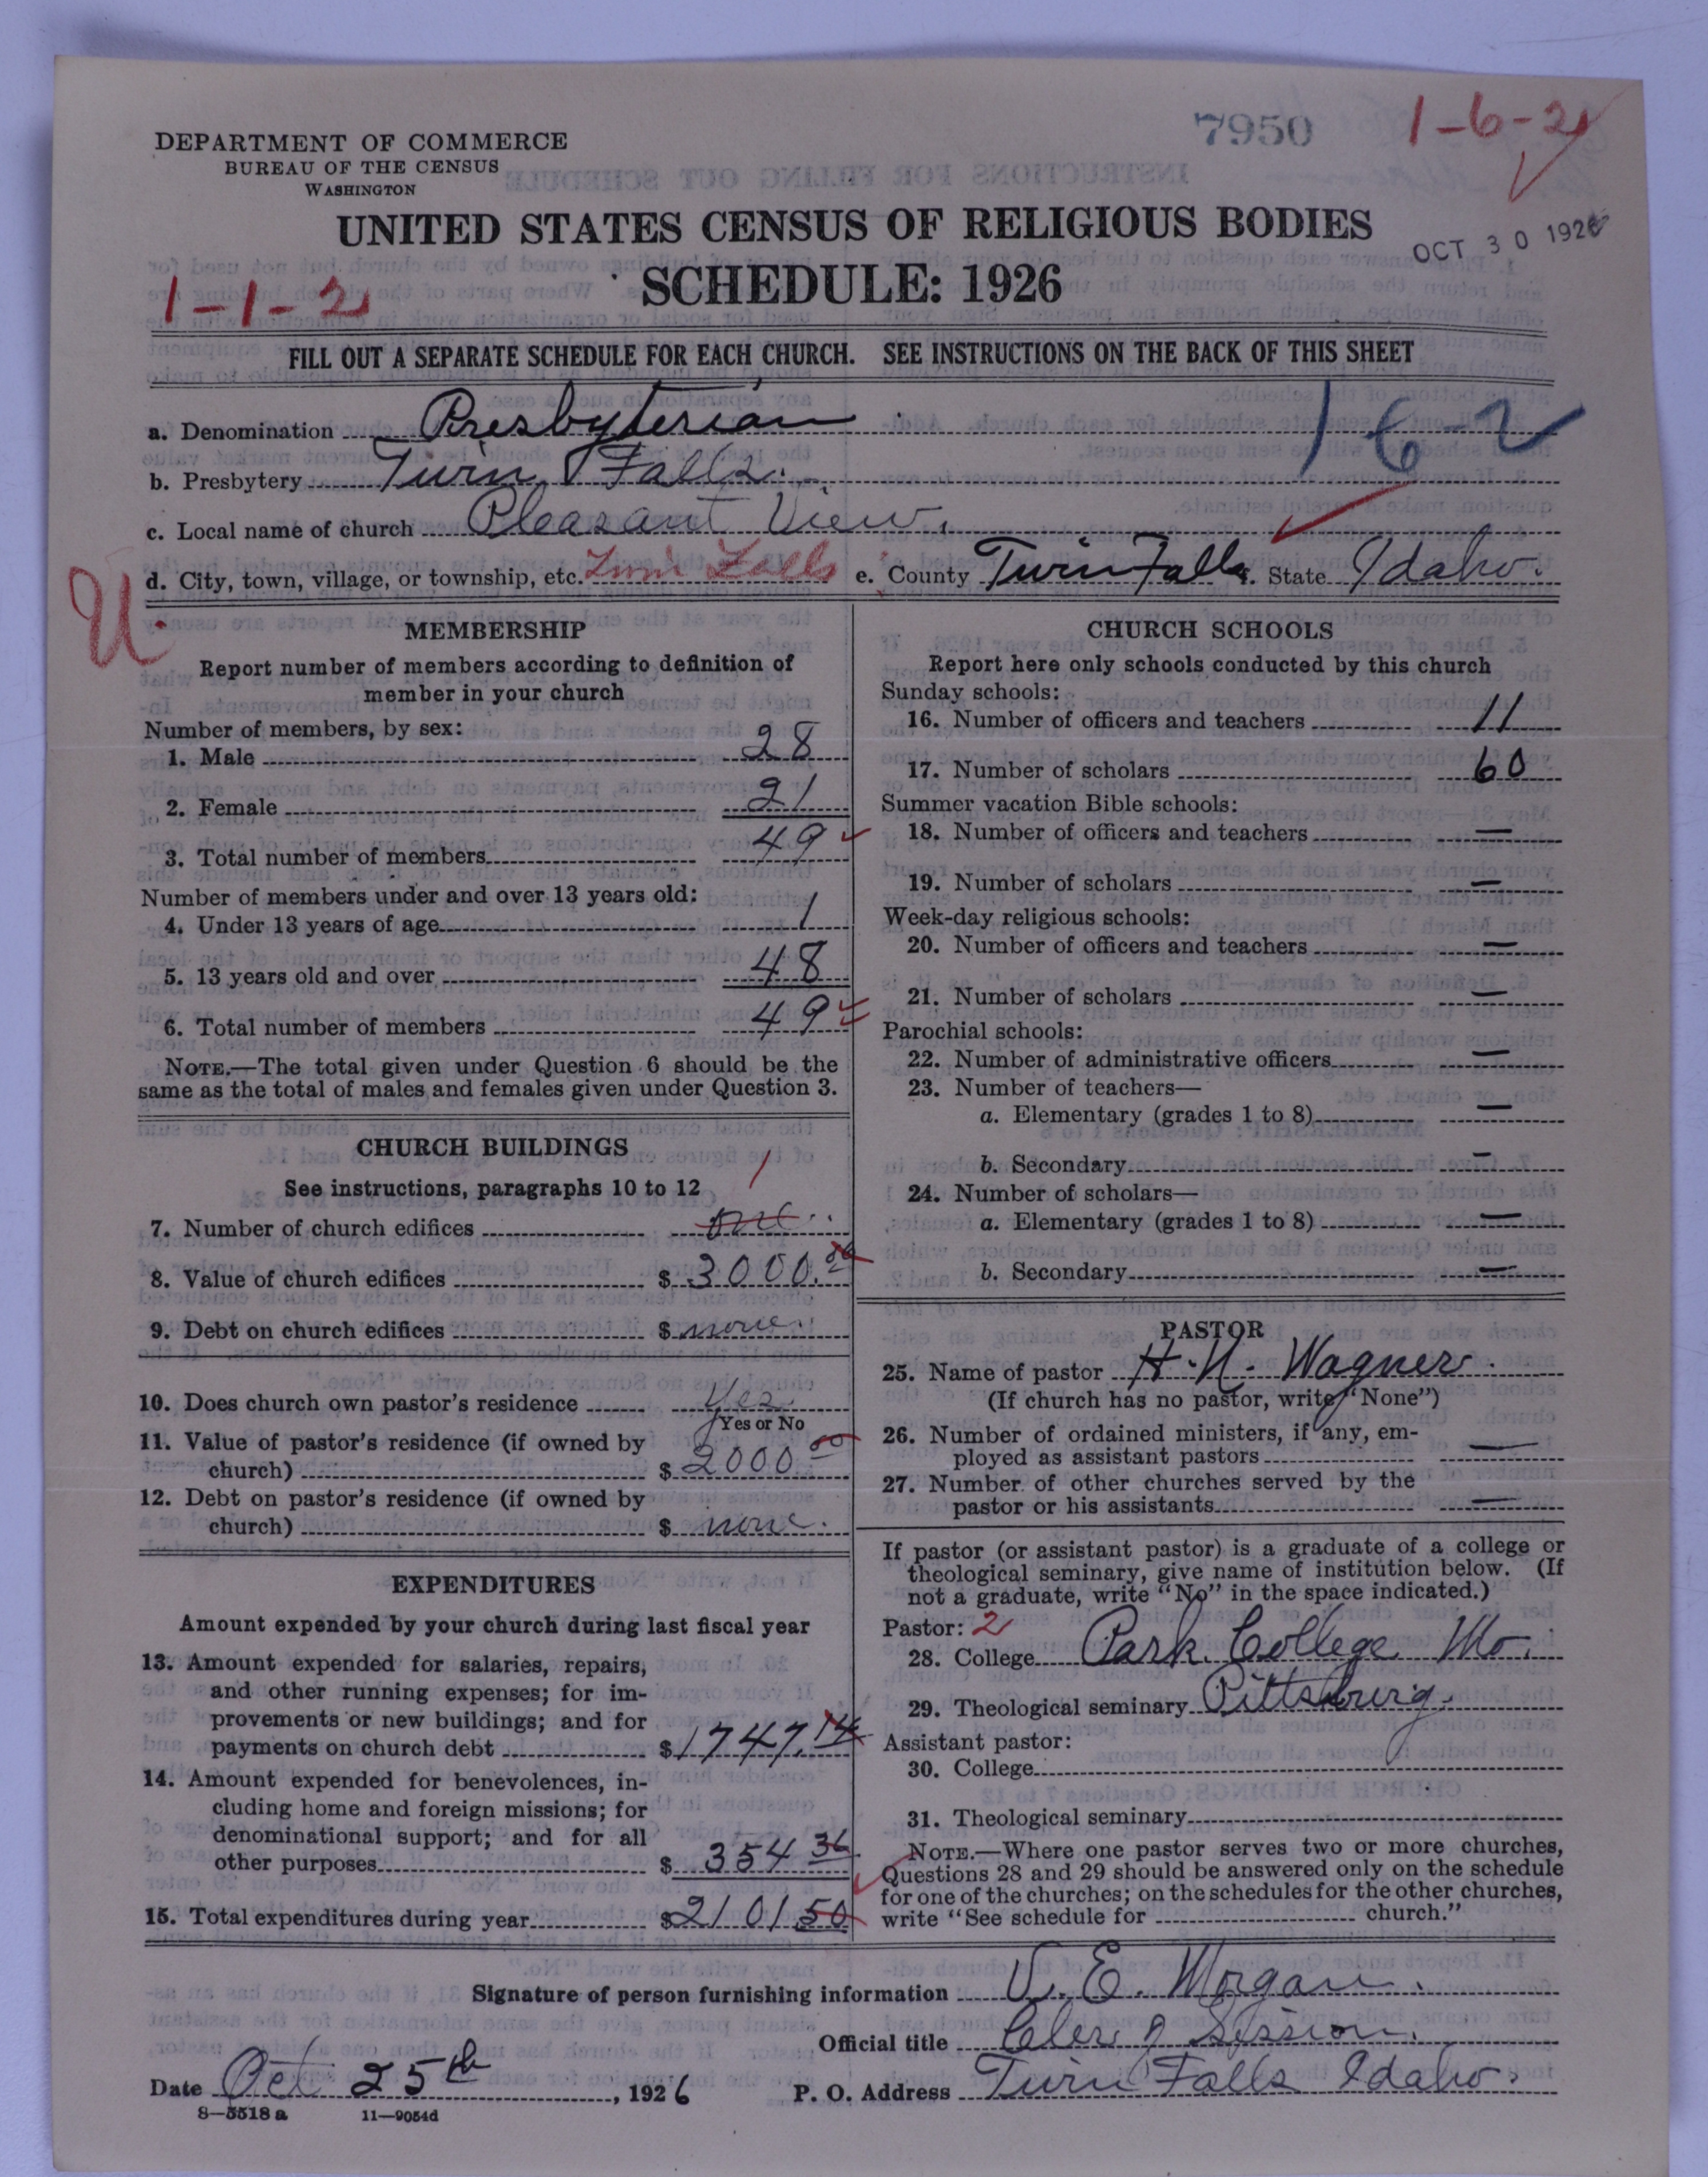 7950
1-6-2
DEPARTMENT OF COMMERCE
BUREAU OF THE CENSUS
WASHINGTON
UNITED STATES CENSUS OF RELIGIOUS BODIES
OCT 30 1926
SCHEDULE: 1926
1-1-2
FILL OUT A SEPARATE SCHEDULE FOR EACH CHURCH. SEE INSTRUCTIONS ON THE BACK OF THIS SHEET
a. Denomination Presbyterian
1 6-2
b. Presbytery Twin Falls.
c. Local name of church Pleasant View.
d. City, town, village, or township, etc. Twin Falls e. County Twin Falls f. State Idaho.
U.
MEMBERSHIP
Report number of members according to definition of
member in your church
Number of members, by sex:
1. Male 28
2. Female 21
3. Total number of members 49
Number of members under and over 13 years old:
4. Under 13 years of age 1
5. 13 years old and over 48
6. Total number of members 49
NOTE.—The total given under Question 6 should be the
same as the total of males and females given under Question 3.
CHURCH BUILDINGS
See instructions, paragraphs 10 to 12
1
7. Number of church edifices one
8. Value of church edifices $ 3000.00
9. Debt on church edifices $ none.
10. Does church own pastor's residence Yes
Yes or No
11. Value of pastor's residence (if owned by
church) $ 2000 00
12. Debt on pastor's residence (if owned by
church) $ none.
EXPENDITURES
Amount expended by your church during last fiscal year
13. Amount expended for salaries, repairs,
and other running expenses; for im-
provements or new buildings; and for
payments on church debt $ 1747.14
14. Amount expended for benevolences, in-
cluding home and foreign missions; for
denominational support; and for all
other purposes $ 354 36
15. Total expenditures during year $ 2101 50
CHURCH SCHOOLS
Report here only schools conducted by this church
Sunday schools:
16. Number of officers and teachers 11
17. Number of scholars 60
Summer vacation Bible schools:
18. Number of officers and teachers —
19. Number of scholars —
Week-day religious schools:
20. Number of officers and teachers —
21. Number of scholars —
Parochial schools:
22. Number of administrative officers —
23. Number of teachers—
a. Elementary (grades 1 to 8) —
b. Secondary —
24. Number of scholars—
a. Elementary (grades 1 to 8) —
b. Secondary —
PASTOR
25. Name of pastor H. N. Wagner.
(If church has no pastor, write "None")
26. Number of ordained ministers, if any, em-
ployed as assistant pastors —
27. Number of other churches served by the
pastor or his assistants —
If pastor (or assistant pastor) is a graduate of a college or
theological seminary, give name of institution below. (If
not a graduate, write "No" in the space indicated.)
Pastor: 2
28. College Park College Mo.
29. Theological seminary Pittsburg.
Assistant pastor:
30. College
31. Theological seminary
NOTE.—Where one pastor serves two or more churches,
Questions 28 and 29 should be answered only on the schedule
for one of the churches; on the schedules for the other churches,
write "See schedule for church."
Signature of person furnishing information V. E. Morgan.
Official title Cler of Session.
Date Oct 25th, 1926 P. O. Address Twin Falls Idaho.
8—5518 a 11—9054d